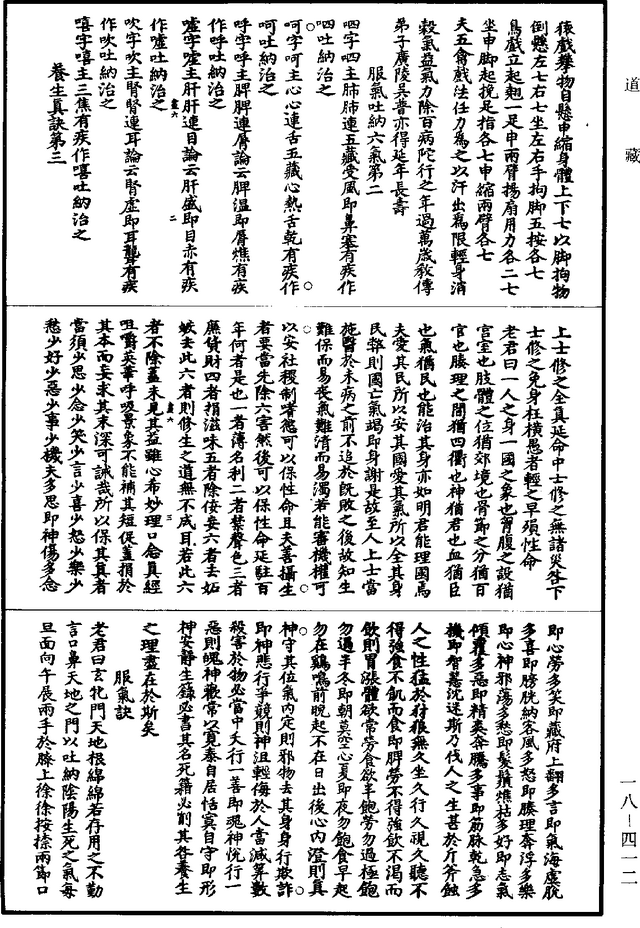 道藏
猿戲攀物自懸申縮身體上下七以脚拘物
倒懸左七右七坐左右手拘脚五按各七
鳥戲立起翹一足申兩臂揚扇用力各二七
坐申脚起挽足指各七申縮兩臂各七
夫五禽戲法任力爲之以汗出爲限輕身消
穀氣益氣力除百病陀行之年過萬歲教傳
弟子廣陵吳普亦得延年長壽
服氣吐納六氣第二
呬字呬主肺肺連五藏受風即鼻塞有疾作
呬吐納治之
呵字呵主心心連舌五藏心熱舌乾有疾作
呵吐納治之
呼字呼主脾脾連脣論云脾温即脣燋有疾
作呼吐納治之
噓字噓主肝肝連目論云肝盛即目赤有疾
作噓吐納治之
吹字吹主腎腎連耳論云腎虛即耳聾有疾
作吹吐納治之
嘻字嘻主三焦有疾作嘻吐納治之
養生真訣第三
盡六
二
上士修之全真延命中士修之無諸災咎下
士修之免身枉橫愚者輕之早殞性命
老君曰一人之身一國之象也胷腹之設猶
宮室也肢體之位猶郊境也骨節之分猶百
官也腠理之閒猶四衢也神猶君也血猶臣
也氣猶民也能治其身亦如明君能理國焉
夫愛其民所以安其國愛其氣所以全其身
民弊則國亡氣竭即身謝是故至人上士當
施醫於未病之前不追於既敗之後故知生
難保而易喪氣難清而易濁若能審機權可
以安社稷制嗜慾可以保性命且夫善攝生
者要當先除六害然後可以保性命延駐百
年何者是也一者薄名利二者禁聲色三者
廉貨財四者捐滋味五者除佞妄六者去妬
嫉去此六者則修生之道無不成耳若此六
者不除蓋未見其益雖心希妙理口念真經
咀嚼英華呼吸景象不能補其短促蓋捐於
其本而妄求其末深可誡哉所以保其真者
當須少思少念少笑少言少喜少怒少樂少
愁少好少惡少事少機夫多思即神傷多念
盡六
三
即心勞多笑即藏府上翻多言即氣海虛脫
多喜即膀胱納客風多怒即腠理奔浮多樂
即心神邪蕩多愁即髮鬢燋枯多好即志氣
傾覆多惡即精爽奔騰多事即筋脉乾急多
機即智慧沈迷斯乃伐人之生甚於斤斧蝕
人之性猛於豺狼無久坐久行久視久聽不
得強食不飢而食即脾勞不得強飲不渴而
飲則胃漲體欲常勞食欲半飽勞勿過極飽
勿過半冬即朝莫空心夏即夜勿飽食早起
勿在鷄鳴前晚起不在日出後心內澄則真
神守其位氣內定則邪物去其身身行欺詐
即神悲行爭競則神沮輕侮於人當減算數
殺害於物必當中夭行一善即魂神悅行一
惡則魄神歡常以寬泰自居恬寞自守即形
神安靜生籙必書其名死籍必削其咎養生
之理盡在於斯矣
服氣訣
老君曰玄牝門天地根綿綿若存用之不勤
言口鼻天地之門以吐納陰陽生死之氣每
旦面向午展兩手於膝上徐徐按捺兩節口
一八-四一二